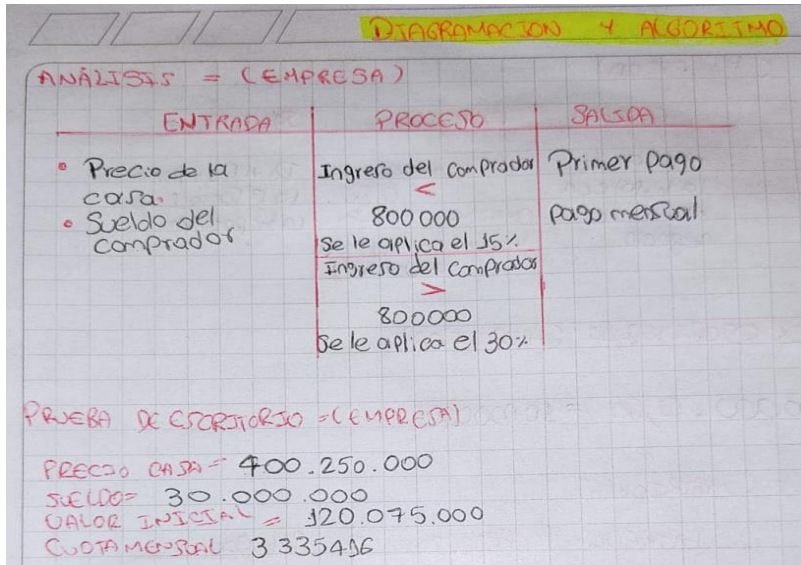 DIAGRAMACION Y ALGORITMO
ANÁLISIS = (EMPRESA)
ENTRADA PROCESO SALIDA
• Precio de la casa.
• Sueldo del comprador
Ingreso del comprador
<
800 000
Se le aplica el 15%
Ingreso del comprador
>
800000
Se le aplica el 30%
Primer pago
pago mensual
PRUEBA DE ESCRITORIO = (EMPRESA)
PRECIO CASA = 400.250.000
SUELDO = 30.000.000
VALOR INICIAL = 120.075.000
CUOTA MENSUAL 3335416